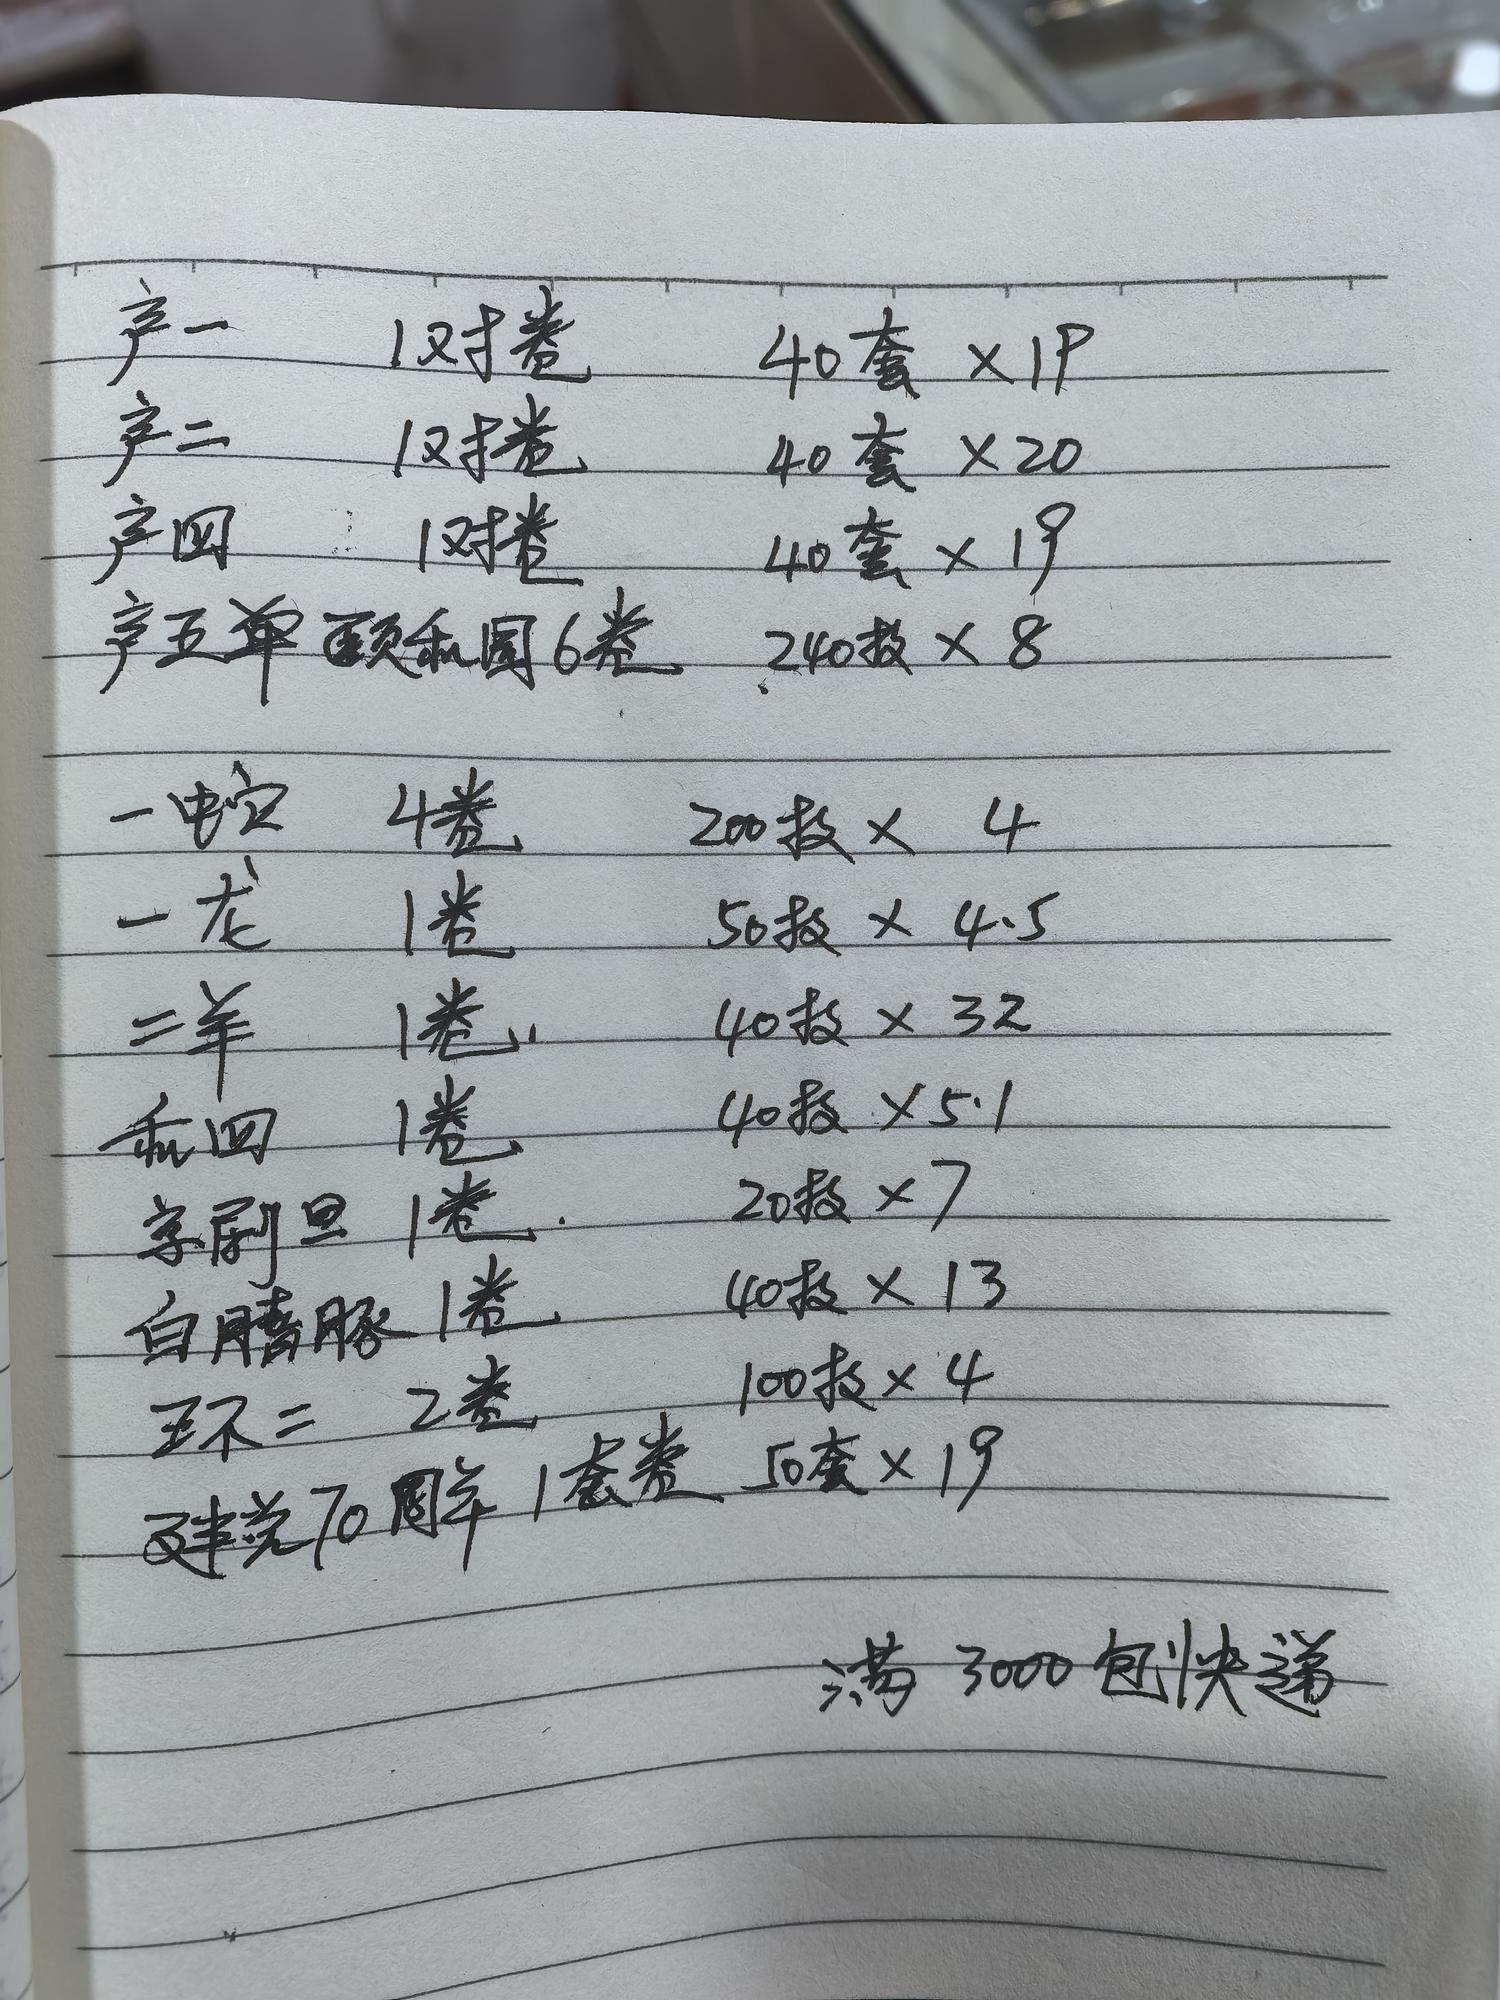 产一 1对卷 40套 ×19
产二 1对卷 40套 ×20
产四 1对卷 40套 × 19
产五单 颐和园6卷 240枚 × 8
一蛇 4卷 200枚 × 4
一龙 1卷 50枚 × 4.5
二羊 1卷 40枚 × 32
和四 1卷 40枚 ×5.1
字刷旦 1卷 20枚 ×7
白𬶨豚 1卷 40枚 × 13
环二 2卷 100枚 × 4
建党70周年 1套卷 50套 × 19
满 3000 包快递